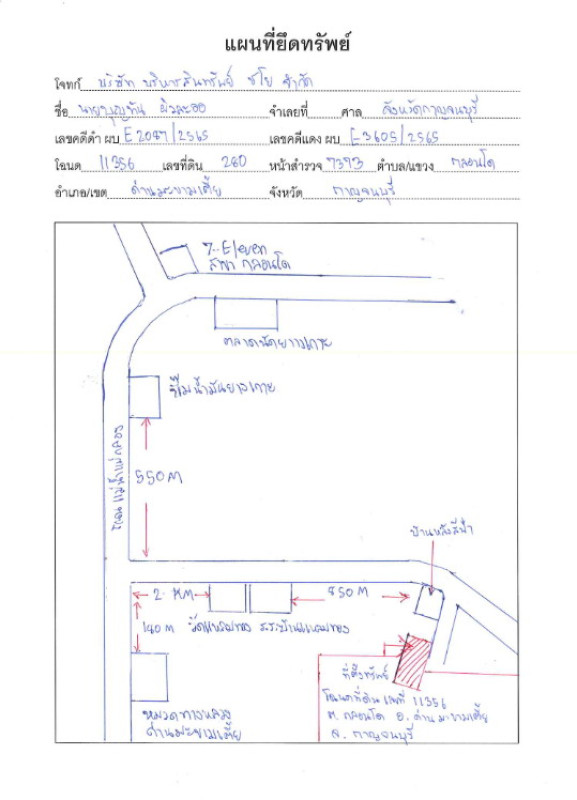 แผนที่ยึดทรัพย์
โจทก์ บริษัท บริหารสินทรัพย์ ชโย จำกัด
ชื่อ นายบุญทัน ผิวละออ จำเลยที่ ศาล จังหวัดกาญจนบุรี
เลขคดีดำ ผบ E2087/2565 เลขคดีแดง ผบ E3605/2565
โฉนด 11356 เลขที่ดิน 260 หน้าสำรวจ 7393 ตำบล/แขวง กลอนโด
อำเภอ/เขต ด่านมะขามเตี้ย จังหวัด กาญจนบุรี
7-Eleven
สาขา กลอนโด
ตลาดนัดยางเกาะ
ปั๊มน้ำมันยางเกาะ
ถนน แม่น้ำแม่กลอง
550 M
บ้านหลังสีฟ้า
2 KM
850 M
180 M
ที่ตั้งทรัพย์
โฉนดที่ดิน เลขที่ 11356
ต. กลอนโด อ. ด่านมะขามเตี้ย
จ. กาญจนบุรี
หมวดทางหลวง
ด่านมะขามเตี้ย